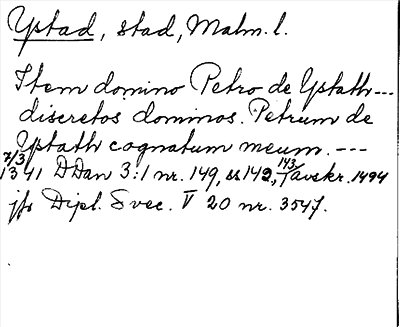 Ystad, stad, Malm. l.
Item domino Petro de Ystath ---
discretos dominos. Petrum de
Ystath cognatum meum. ---
7/3 1341 DDan 3:1 nr. 149, ss 142, 143, avskr. 1494
jfr Dipl. Svec. V 20 nr. 3547.